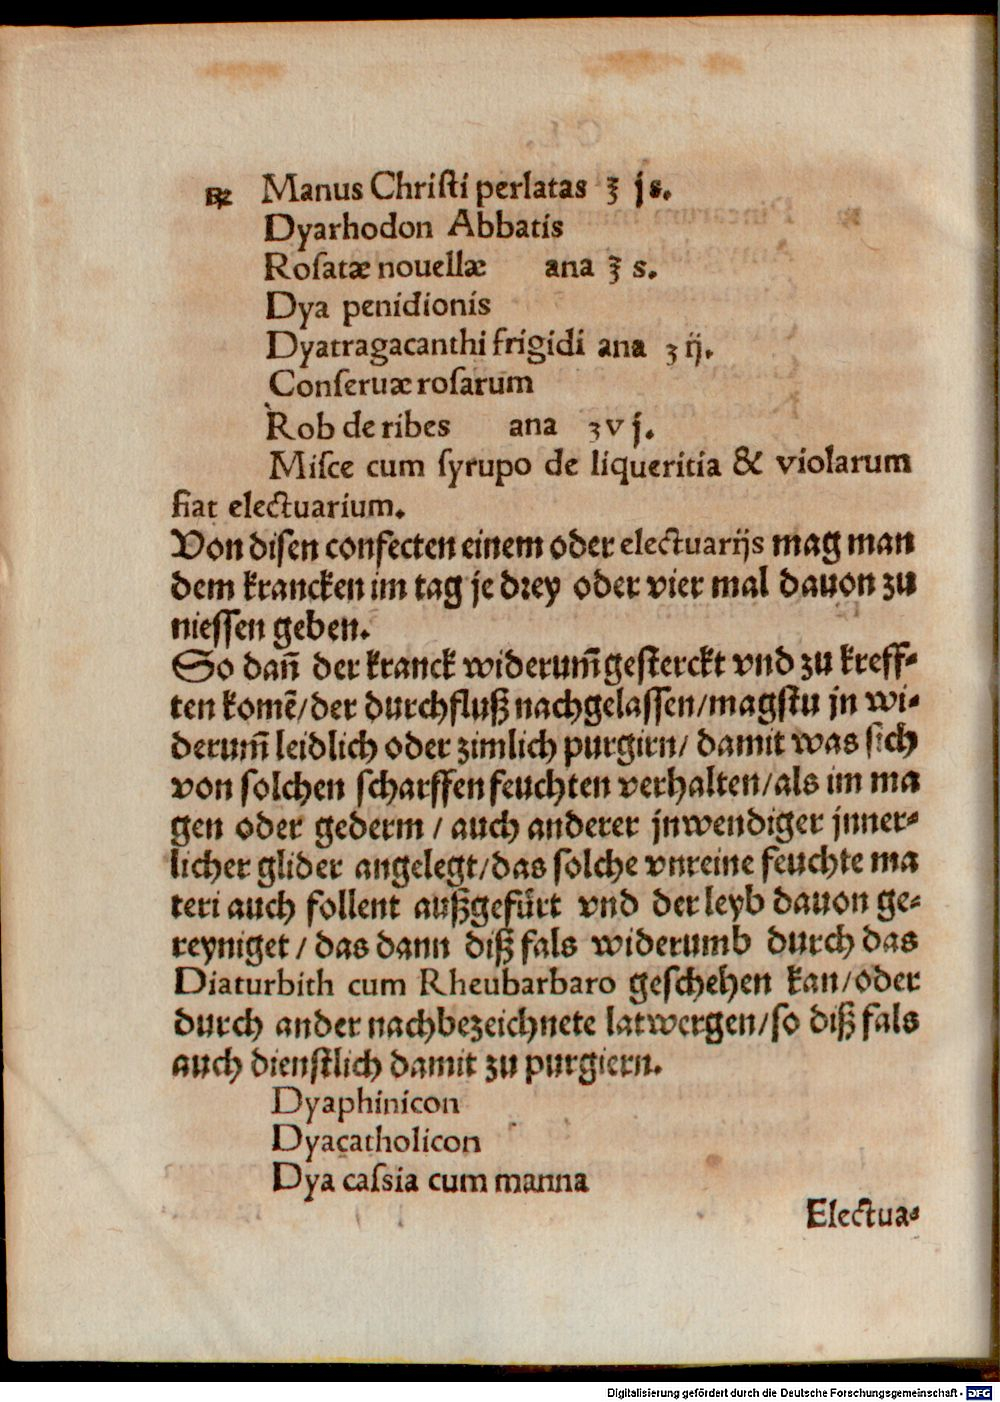 ℞ Manus Chriſti perlatas ℥ js.
Dyarhodon Abbatis
Roſatæ nouellæ ana ℥ s.
Dya penidionis
Dyatragacanthi frigidi ana ʒ ij.
Conſeruæ roſarum
Rob de ribes ana ʒ vj.
Miſce cum ſyrupo de liqueritia & violarum
fiat electuarium.
Von diſen confecten einem oder electuarijs mag man
dem krancken im tag je drey oder vier mal dauon zu
nieſſen geben.
So dañ der kranck widerum̃ geſterckt vnd zu kreff-
ten komẽ/der durchfluß nachgelaſſen/magſtu jn wi-
derum̃ leidlich oder zimlich purgirn/ damit was ſich
von ſolchen ſcharffen feuchten verhalten/als im ma
gen oder gederm / auch anderer jnwendiger jnner-
licher glider angelegt/das ſolche vnreine feuchte ma
teri auch follent außgefuͤrt vnd der leyb dauon ge-
reyniget / das dann diß fals widerumb durch das
Diaturbith cum Rheubarbaro geſchehen kan/oder
durch ander nachbezeichnete latwergen/ſo diß fals
auch dienſtlich damit zu purgiern.
Dyaphinicon
Dyacatholicon
Dya caſsia cum manna
Electua-
Digitalisierung gefördert durch die Deutsche Forschungsgemeinschaft - DFG